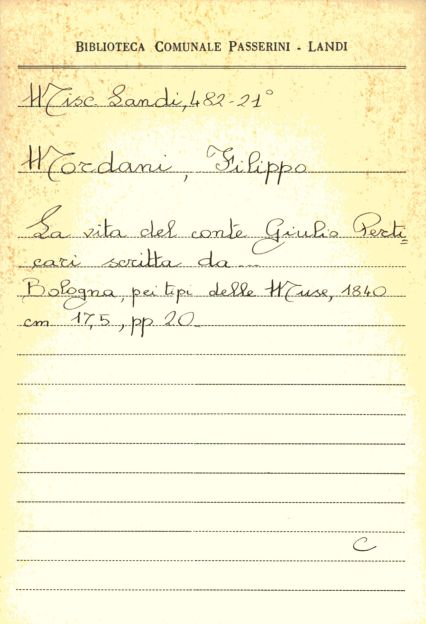 BIBLIOTECA COMUNALE PASSERINI - LANDI
Misc. Landi, 482-21°
Mordani, Filippo
La vita del conte Giulio Perti=
cari scritta da...
Bologna, pei tipi delle Muse, 1840
cm 17,5, pp 20
C